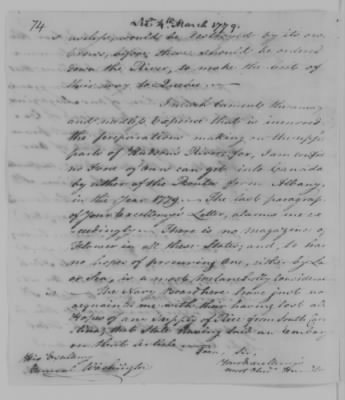 74
4th March 1779.
useless, would be destroyed by its own
before these should be ordered
down the River, to make the best of
their way to Quebec.
I much lament the
and needless Expence that is incurred
the preparations making on the upper
parts of Hudson's River; for, I am certain
no Force of ours can get into Canada
by either of the Routes from Albany,
in the Year 1779. The last paragraph
of Your Excellency's Letter, alarms me ex
ceedingly. There is no magazine of
Flower in all these States; and, to have
no hopes of procuring one, either by Land
or Sea, is a most melancholy Consideration
The Navy Board have from just now
acquainted me with their having lost all
Hopes of any Supply of Rice from South Car
olina; that State having laid an Embargo
on that article.
I am, Sir,
Your Excellency's
most Obed. Humble
His Excellency
General Washington